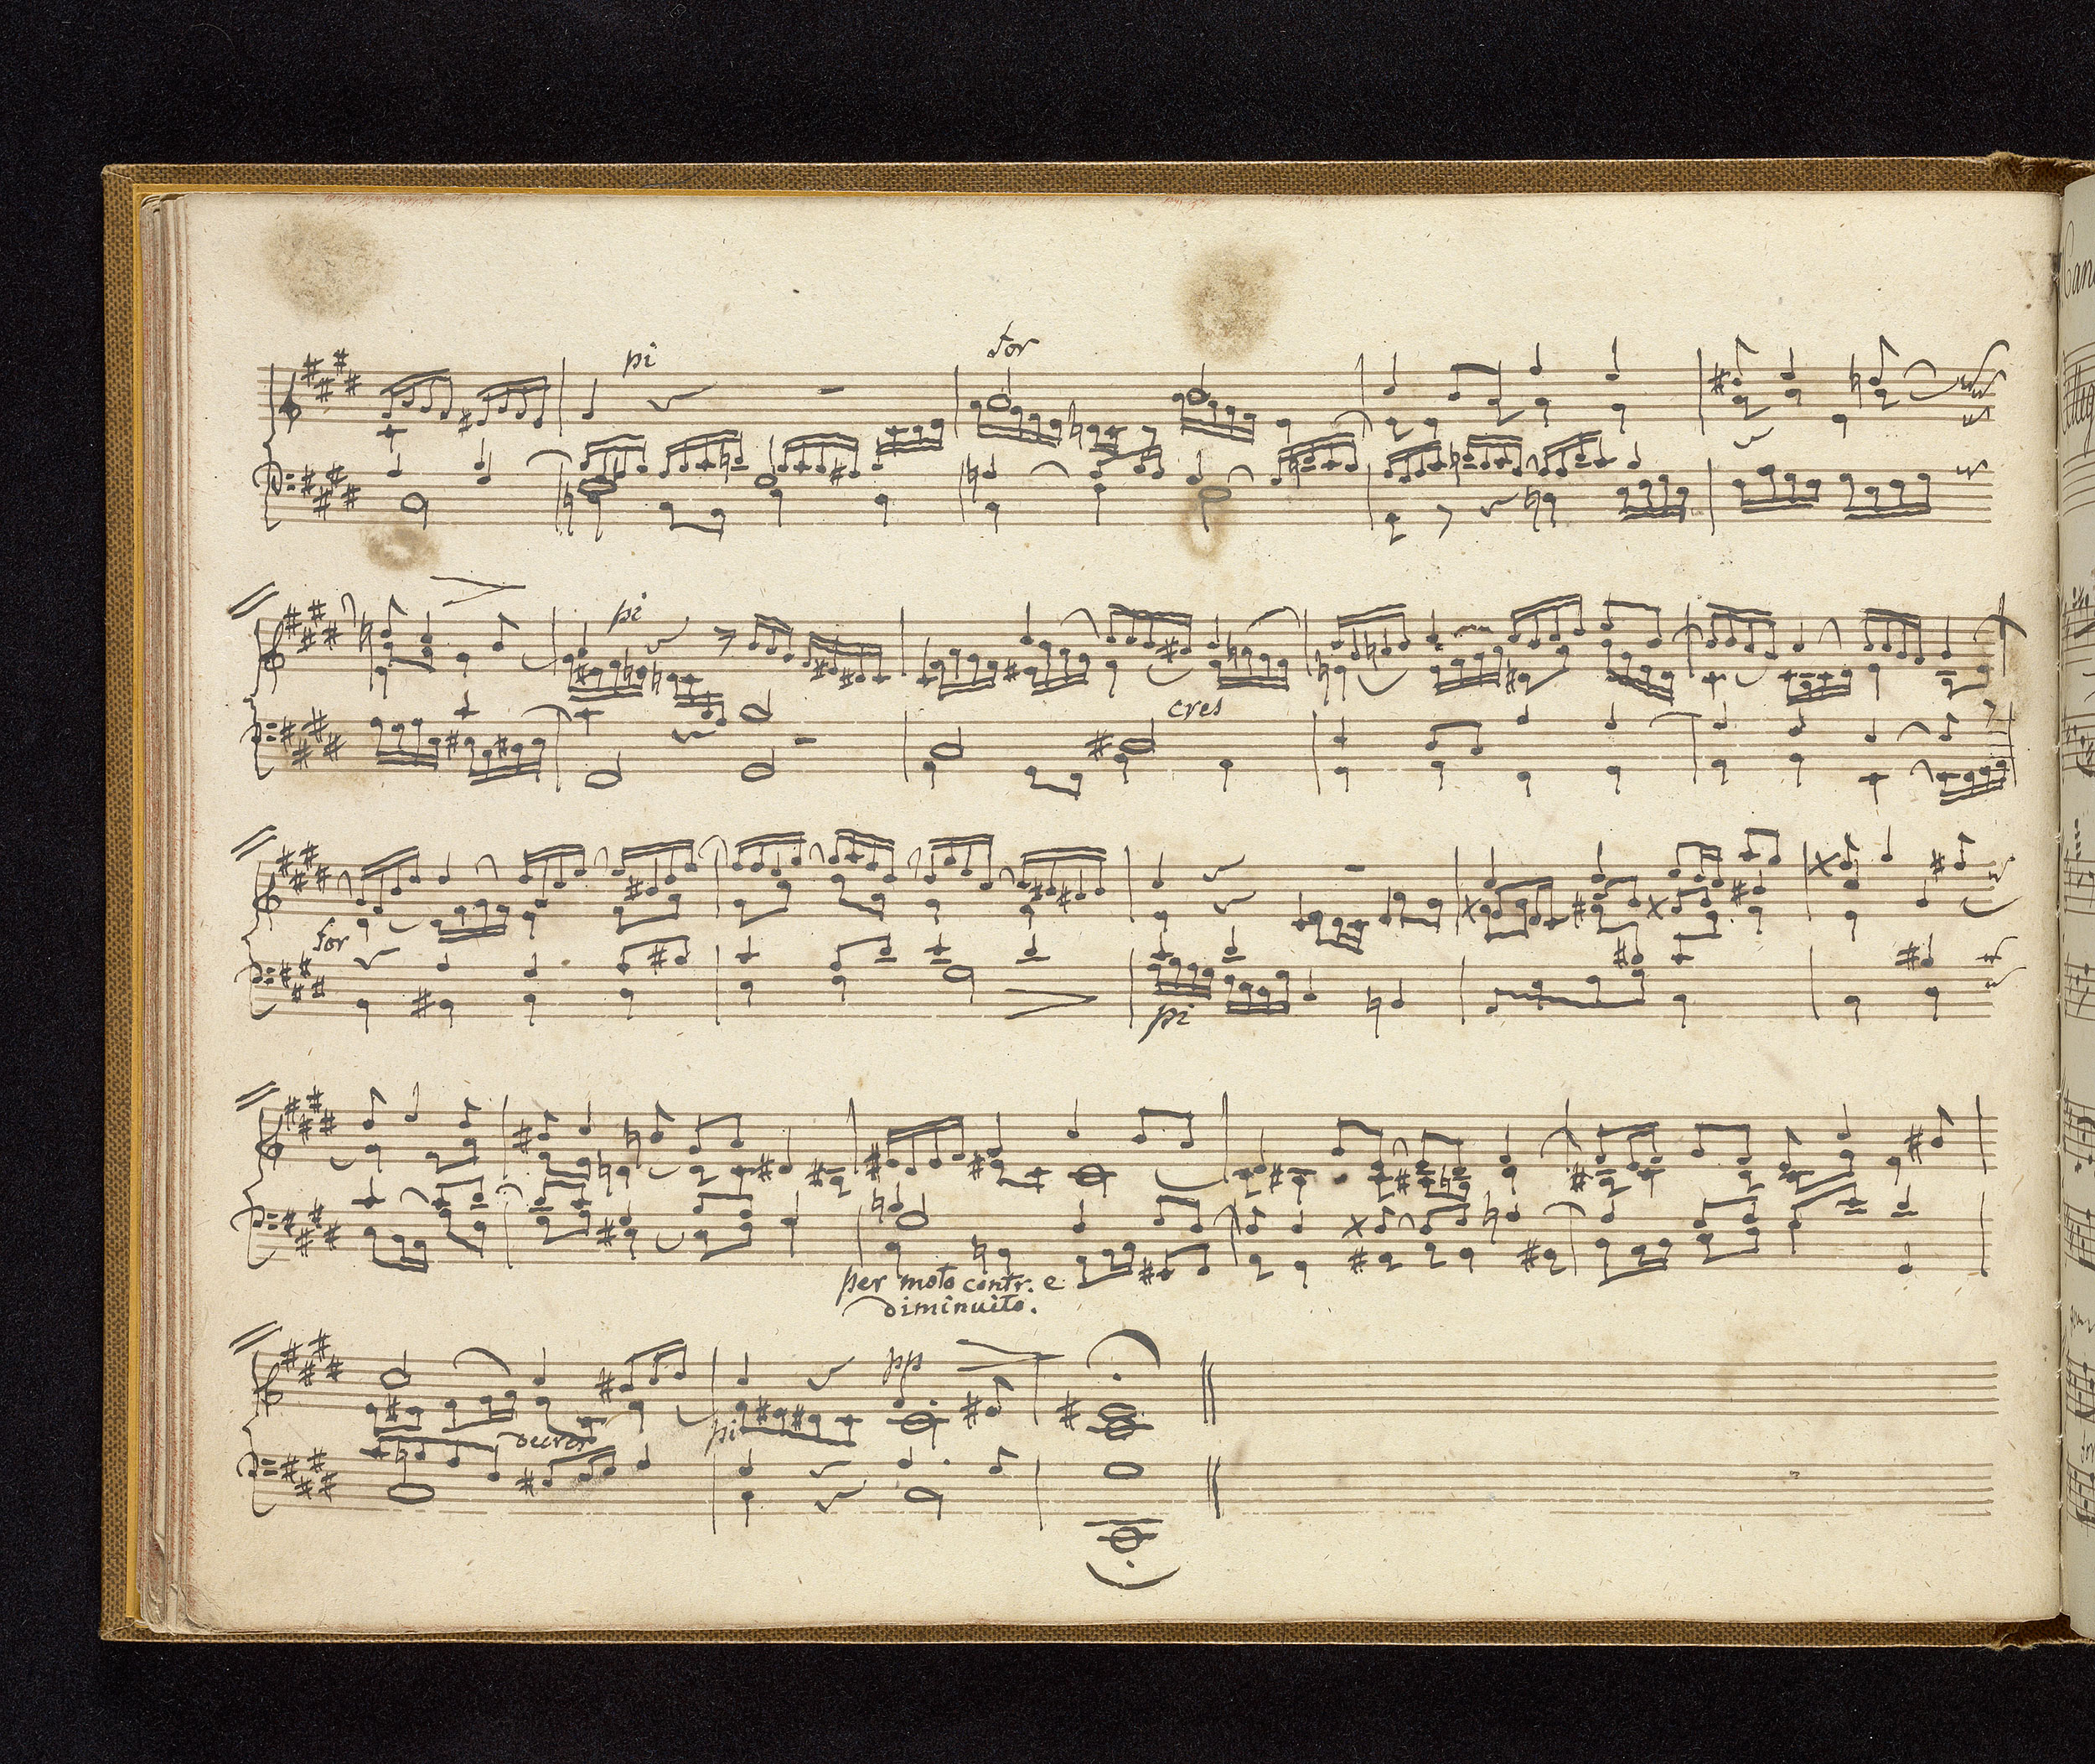 pi
for
pi
cres
for
pi
per moto contr. e
diminuito.
pp
decres
pi